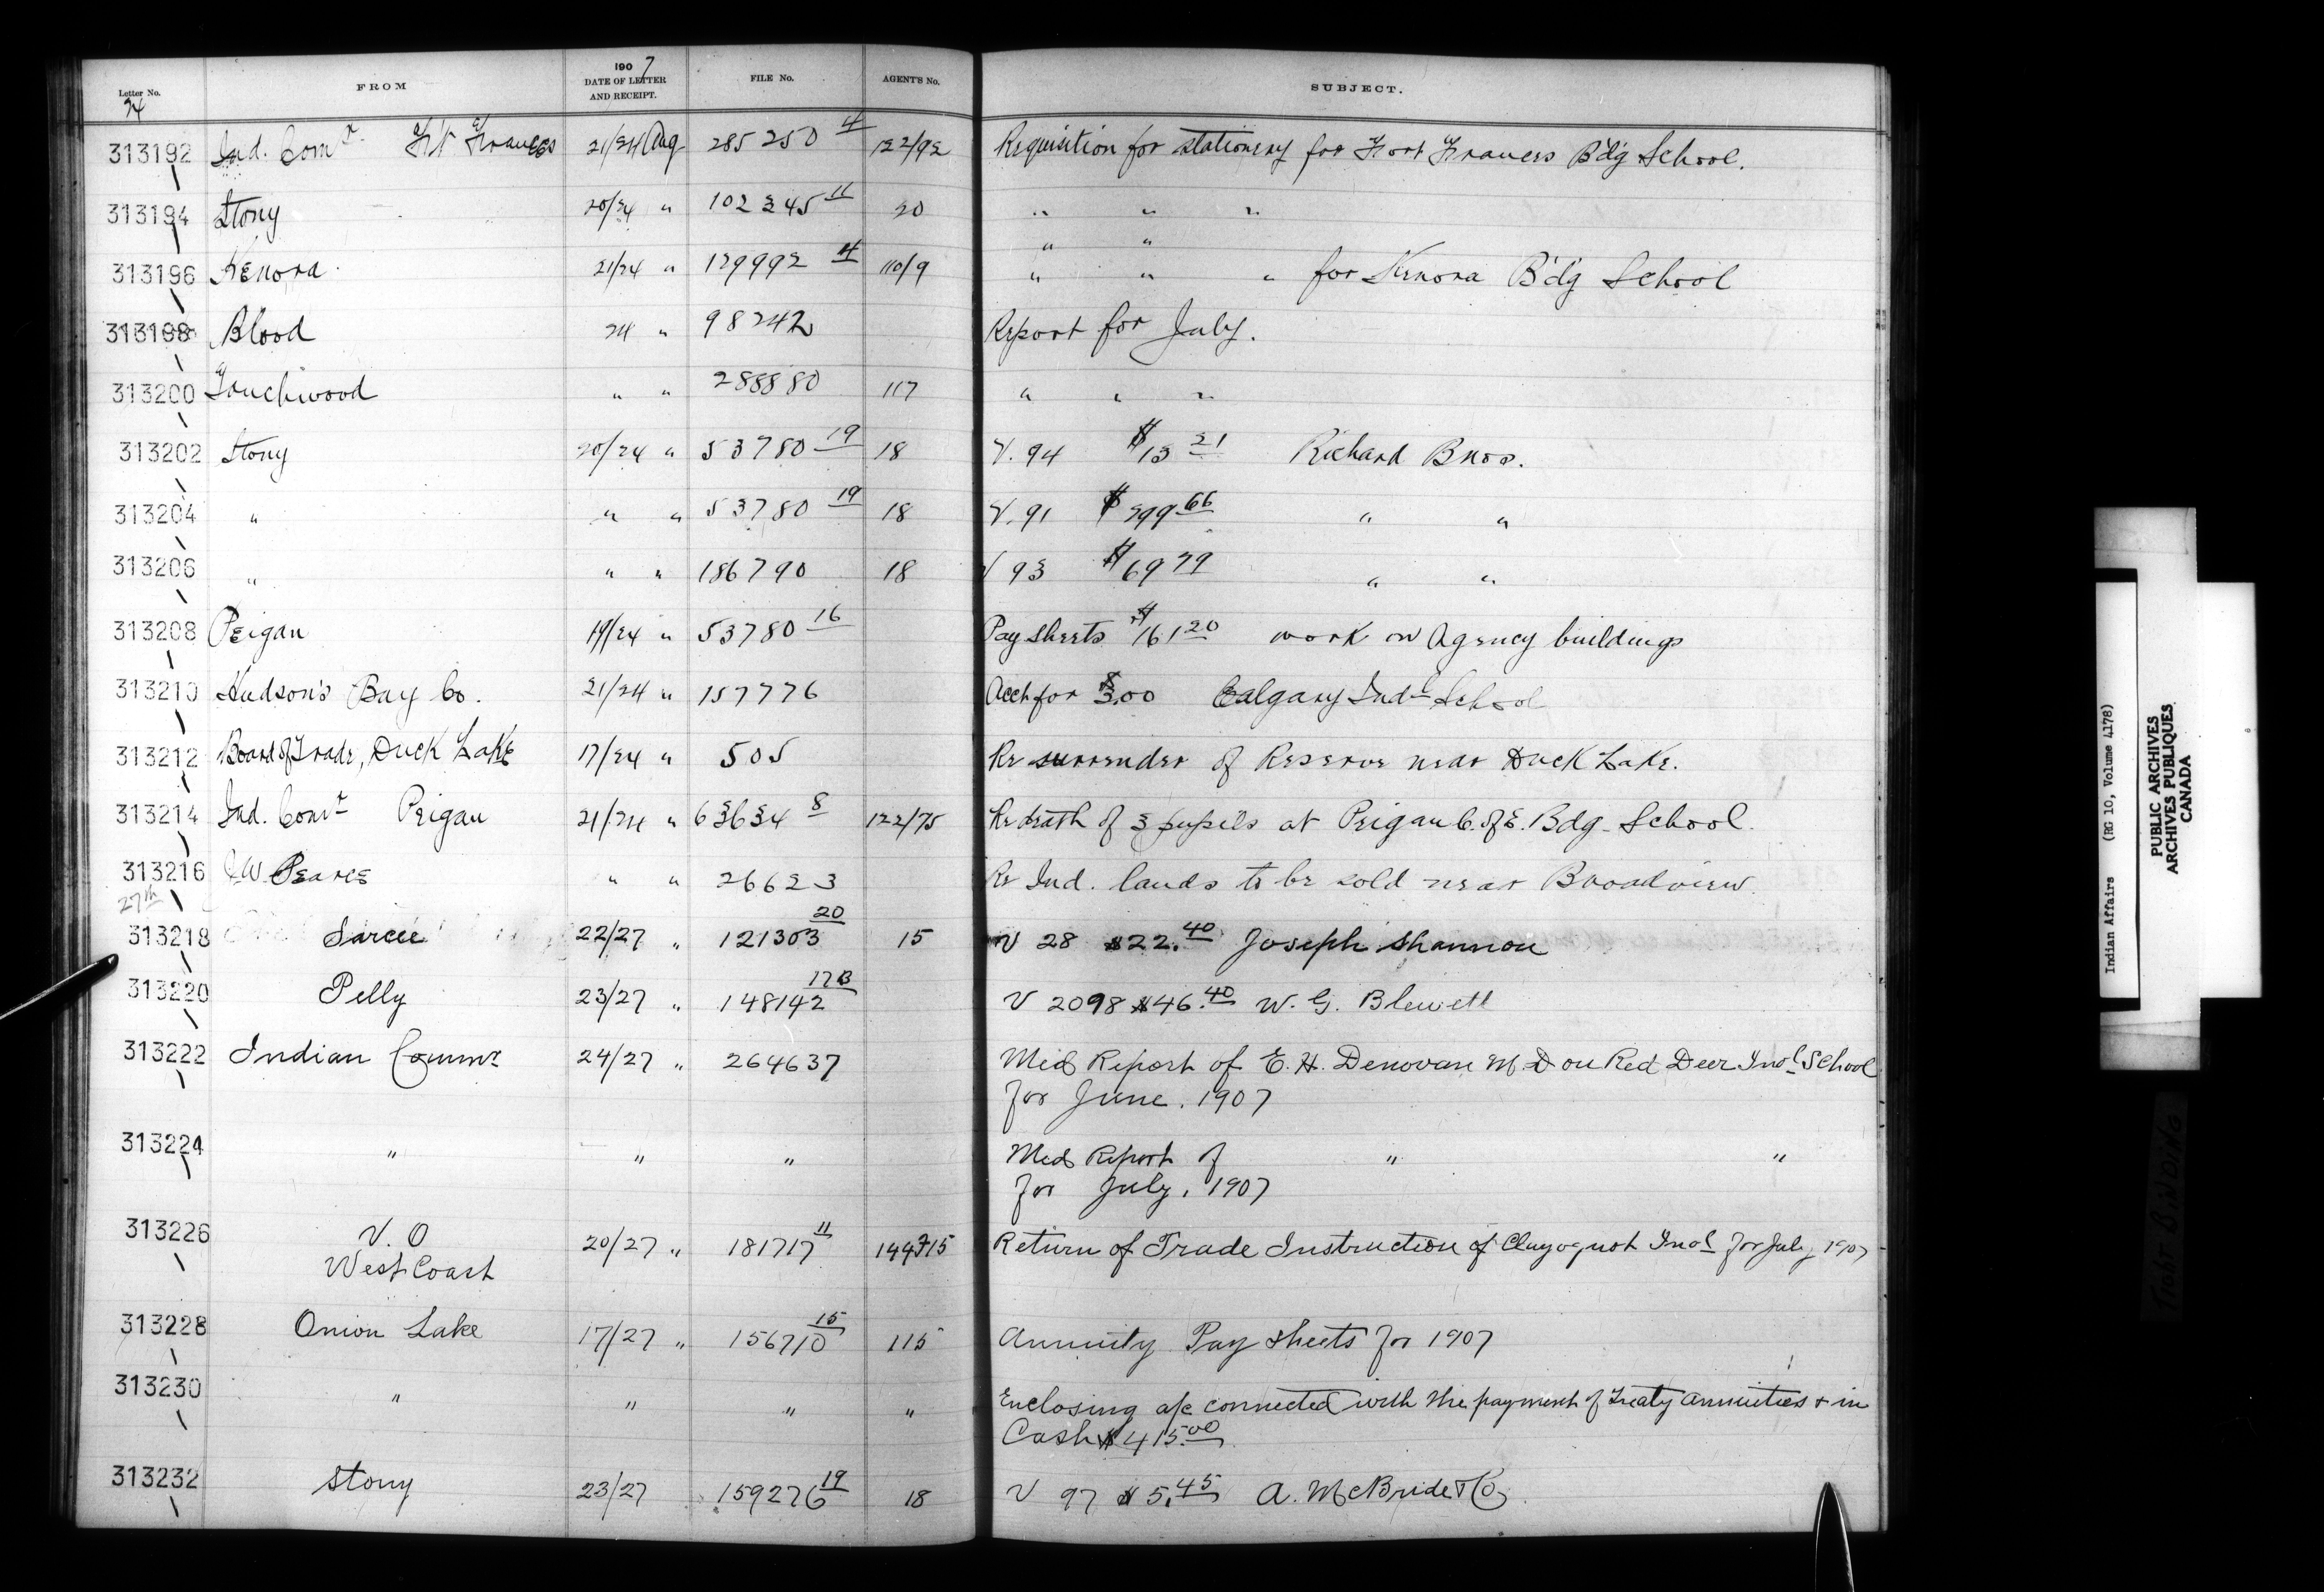 Letter No. FROM 1907 DATE OF LETTER AND RECEIPT. FILE No. AGENT'S No. SUBJECT.
24
313192 Ind. Comr. Ft Frances 21/24 Aug 285250 4 122/92 Requisition for stationery for Fort Frances B'd'g School.
313194 Stony 20/24 " 102345 11 20 " " "
" "
313196 Kenora 21/24 " 129992 4 110/9 " " " for Kenora B'd'g School
313198 Blood 24 " 98242 Report for July.
313200 Touchwood " " 288880 117 " " "
313202 Stony 20/24 " 53780 19 18 V. 94 $13 21 Richard Bros.
313204 " " " 53780 19 18 V. 91 $299 66 " "
313206 " " " 186790 18 V 93 $69 79 " "
313208 Peigan 19/24 " 53780 16 Pay sheets $161 20 work on Agency buildings
313210 Hudson's Bay Co. 21/24 " 157776 Acct for $3.00 Calgary Indl School
313212 Board of Trade, Duck Lake 17/24 " 505 Re surrender of Reserve near Duck Lake.
313214 Ind. Comr Peigan 21/24 " 63634 8 122/75 Re death of 3 pupils at Peigan C. of E. Bdg. School.
313216 J W. Pearce " " 26623 Re Ind. lands to be sold near Broadview.
27th
313218 Sarcee 22/27 " 121303 20 15 V 28 $22.40 Joseph Shannon
313220 Pelly 23/27 " 148142 17B V 2098 $46.40 W. G. Blewett
313222 Indian Commr 24/27 " 264637 Med Report of E. H. Denovan M.D on Red Deer Indl School
for June. 1907
313224 " " " Med Report of " "
for July, 1907
313226 V. O 20/27 " 181717 11 144715 Return of Trade Instruction of Clayoquot Indl for July 1907
West Coast
313228 Onion Lake 17/27 " 156710 15 115 Annuity Pay sheets for 1907
313230 " " " " Enclosing a/c connected with the payment of Treaty annuities & in
Cash $415.00
313232 Stony 23/27 159276 19 18 V 97 $5.45 A. McBride & Co
Indian Affairs (RG 10, Volume 4178)
PUBLIC ARCHIVES
ARCHIVES PUBLIQUES
CANADA
TIGHT BINDING